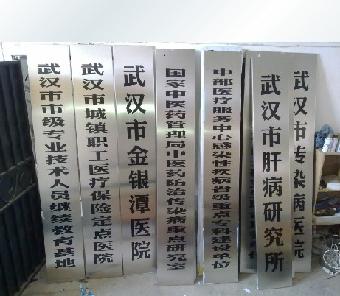 武汉市市级专业技术人员继续教育基地
武汉市城镇职工医疗保险定点医院
武汉市金银潭医院
国家中医药管理局中医药防治传染病重点研究室
中部医疗服务中心感染性疾病省级重点专科建设单位
武汉市肝病研究所
武汉市传染病医院